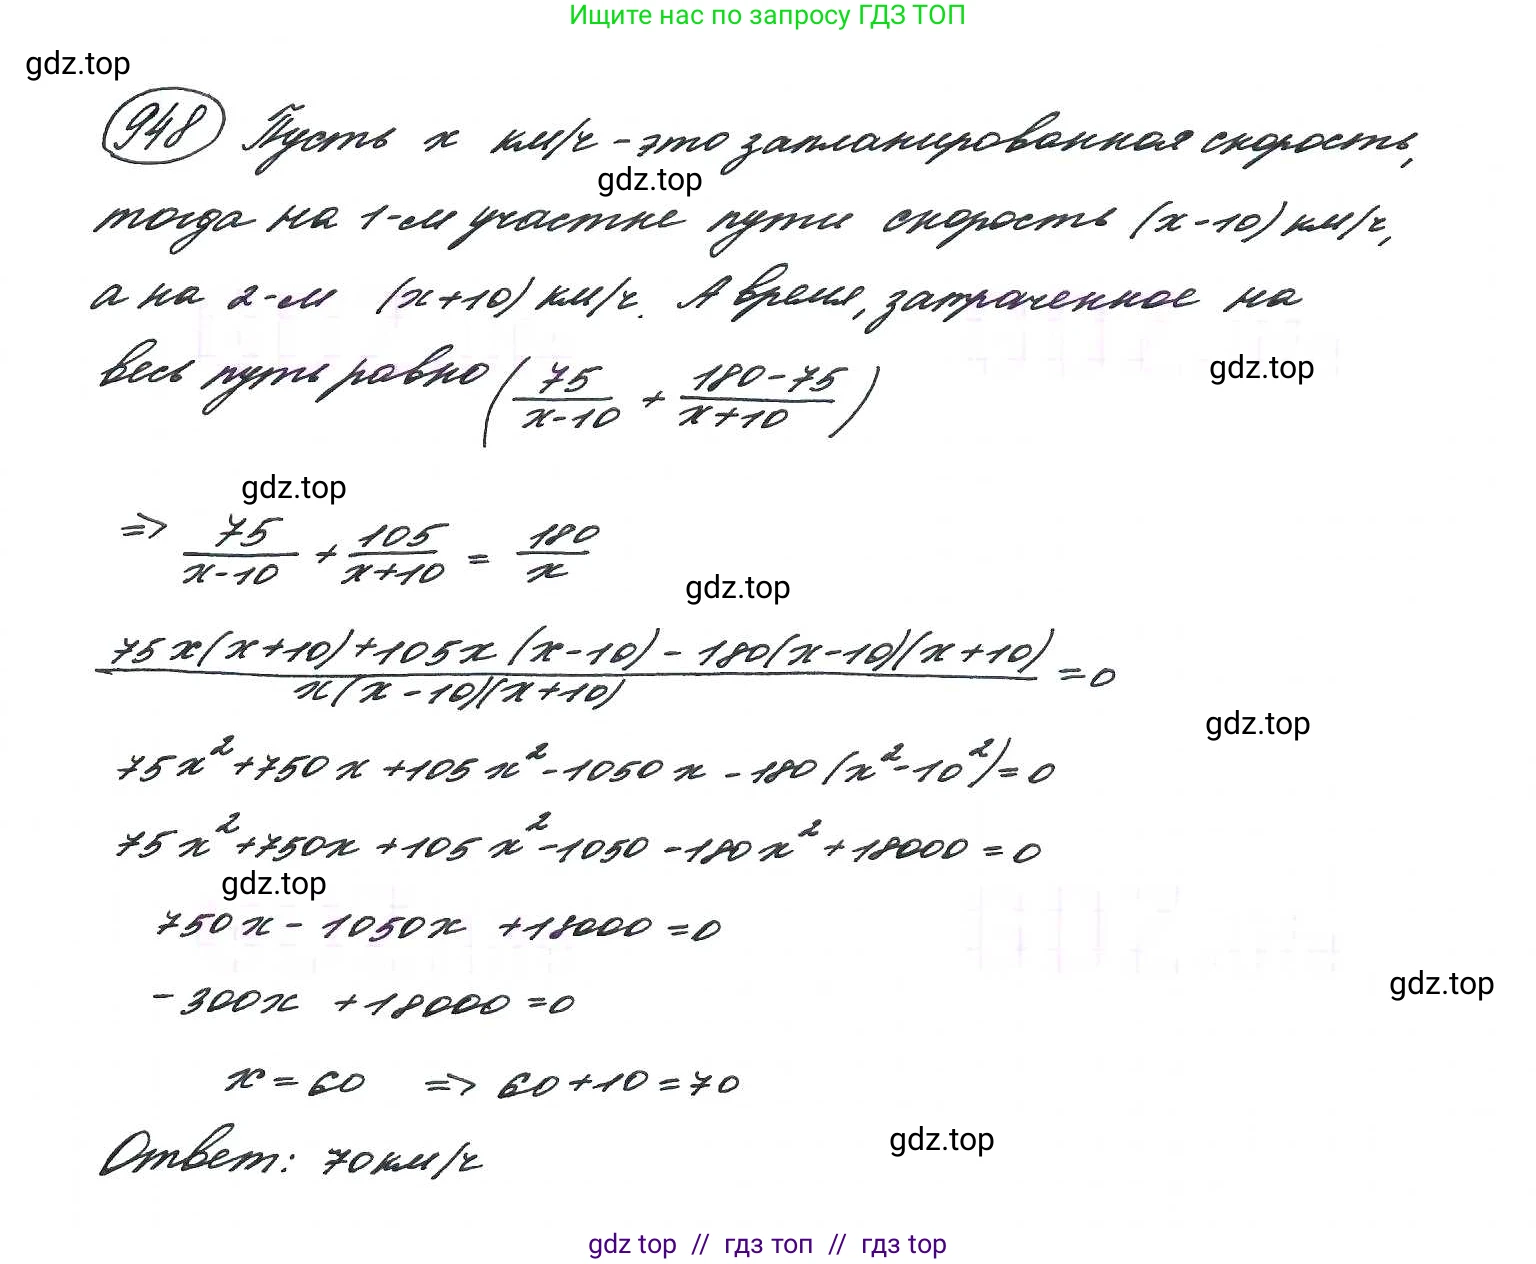 Ищите нас по запросу ГДЗ ТОП
gdz.top
948 Пусть x км/ч - это запланированная скорость,
gdz.top
тогда на 1-м участке пути скорость (x-10) км/ч,
а на 2-м (x+10) км/ч. А время, затраченное на
весь путь равно (75/(x-10) + (180-75)/(x+10))
gdz.top
gdz.top
=> 75/(x-10) + 105/(x+10) = 180/x
gdz.top
(75x(x+10)+105x(x-10)-180(x-10)(x+10))/(x(x-10)(x+10)) = 0
gdz.top
75x²+750x+105x²-1050x-180(x²-10²)=0
75x²+750x+105x²-1050-180x²+18000=0
gdz.top
750x-1050x+18000=0
gdz.top
-300x+18000=0
x=60 => 60+10=70
gdz.top
Ответ: 70км/ч
gdz top // гдз топ // гдз top